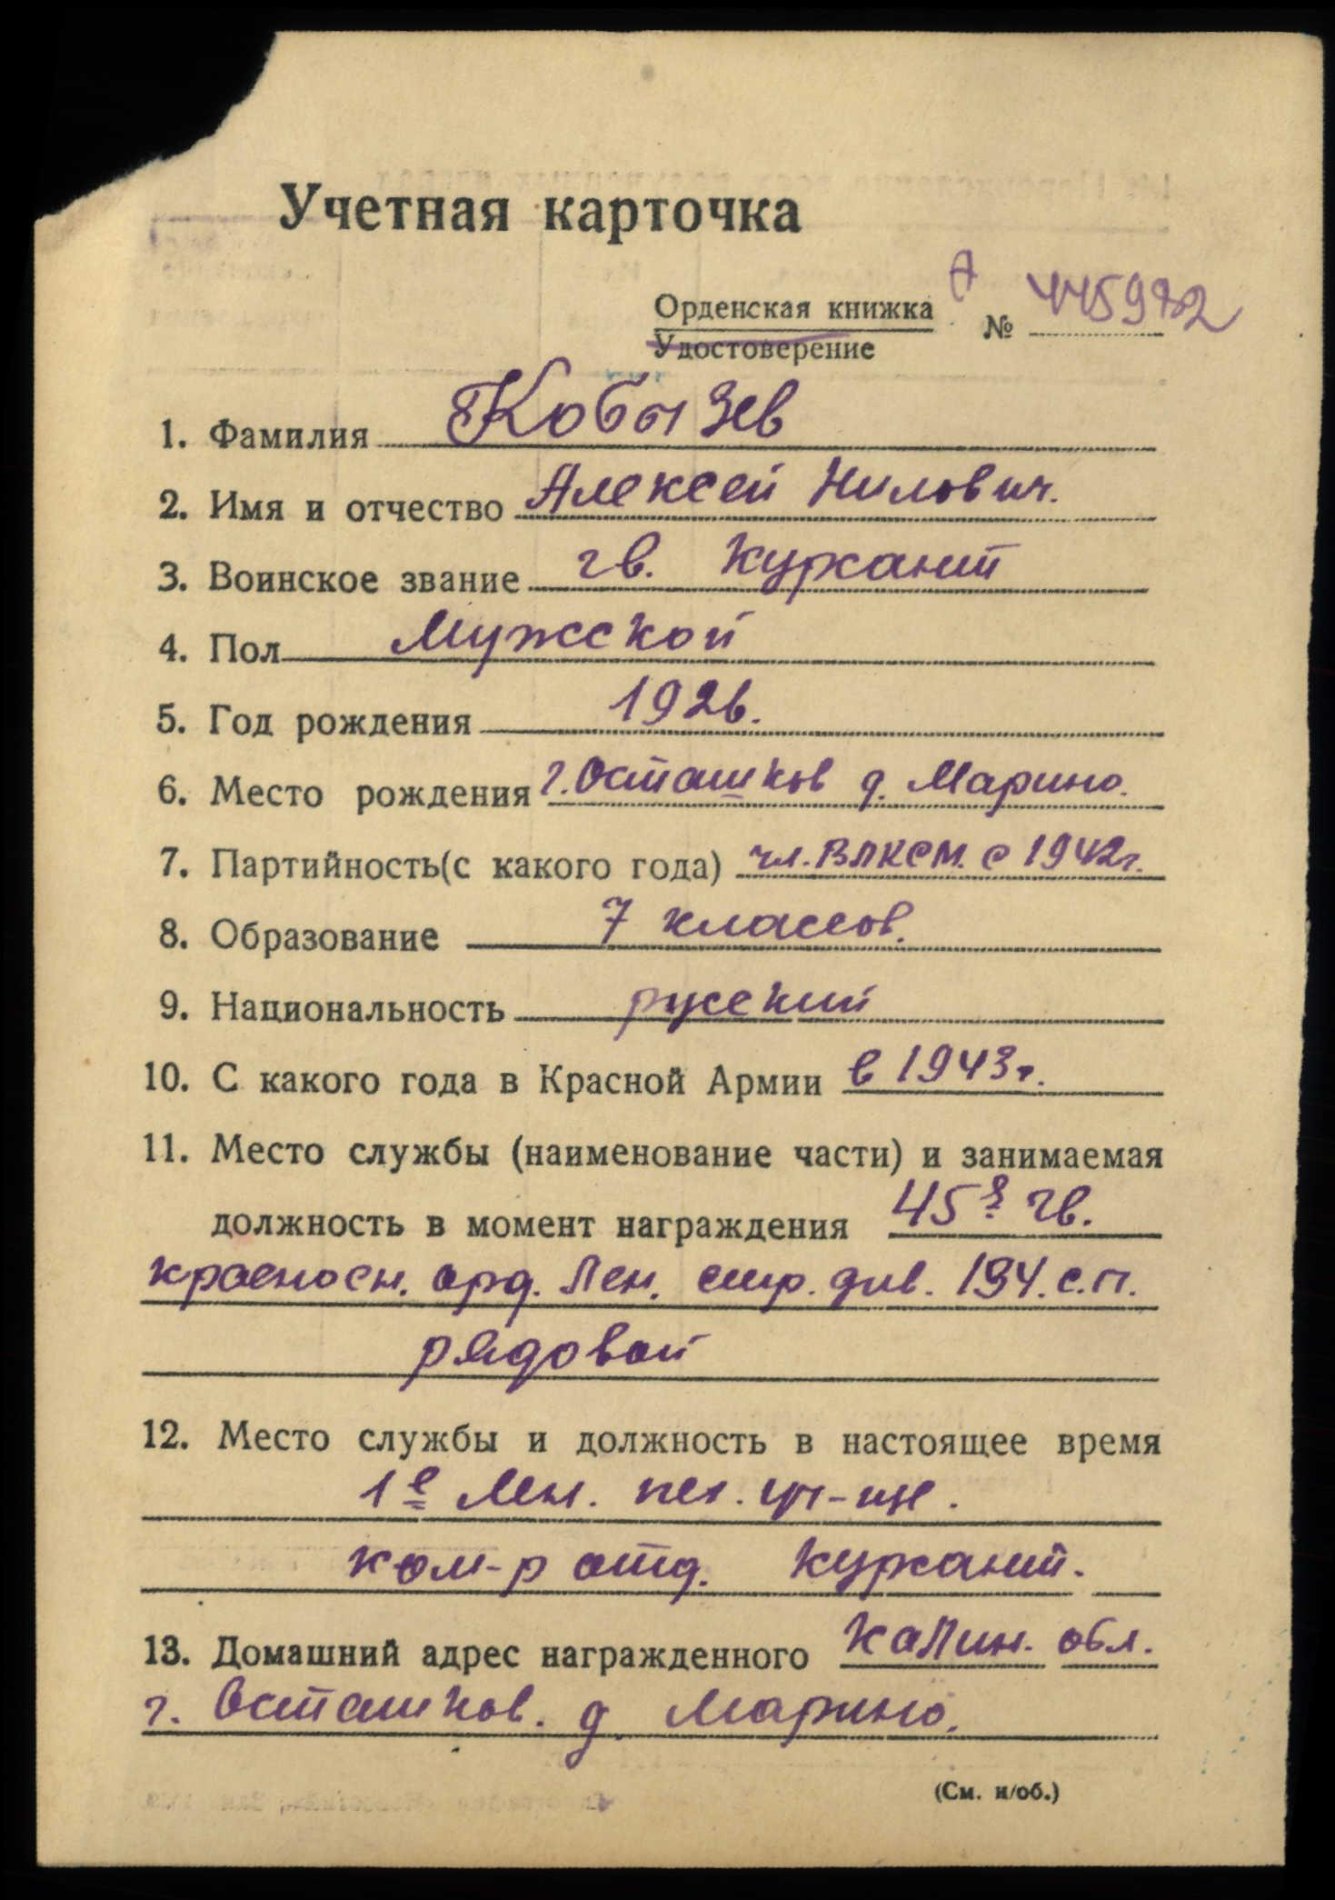 Учетная карточка
Орденская книжка А № 445972
Удостоверение
1. Фамилия Кобызев
2. Имя и отчество Алексей Нилович.
3. Воинское звание гв. Курсант
4. Пол Мужской
5. Год рождения 1926.
6. Место рождения г. Осташков д. Марино.
7. Партийность(с какого года) чл. ВЛКСМ. с 1942г.
8. Образование 7 классов.
9. Национальность русский
10. С какого года в Красной Армии в 1943г.
11. Место службы (наименование части) и занимаемая
должность в момент награждения 45я гв.
красносн. орд. Лен. стр. див. 134. с.п.
рядовой
12. Место службы и должность в настоящее время
1е Лен. пех. уч-ще.
ком-р отд. Курсант.
13. Домашний адрес награжденного Калин. обл.
г. Осташков. д. Марино.
(См. н/об.)